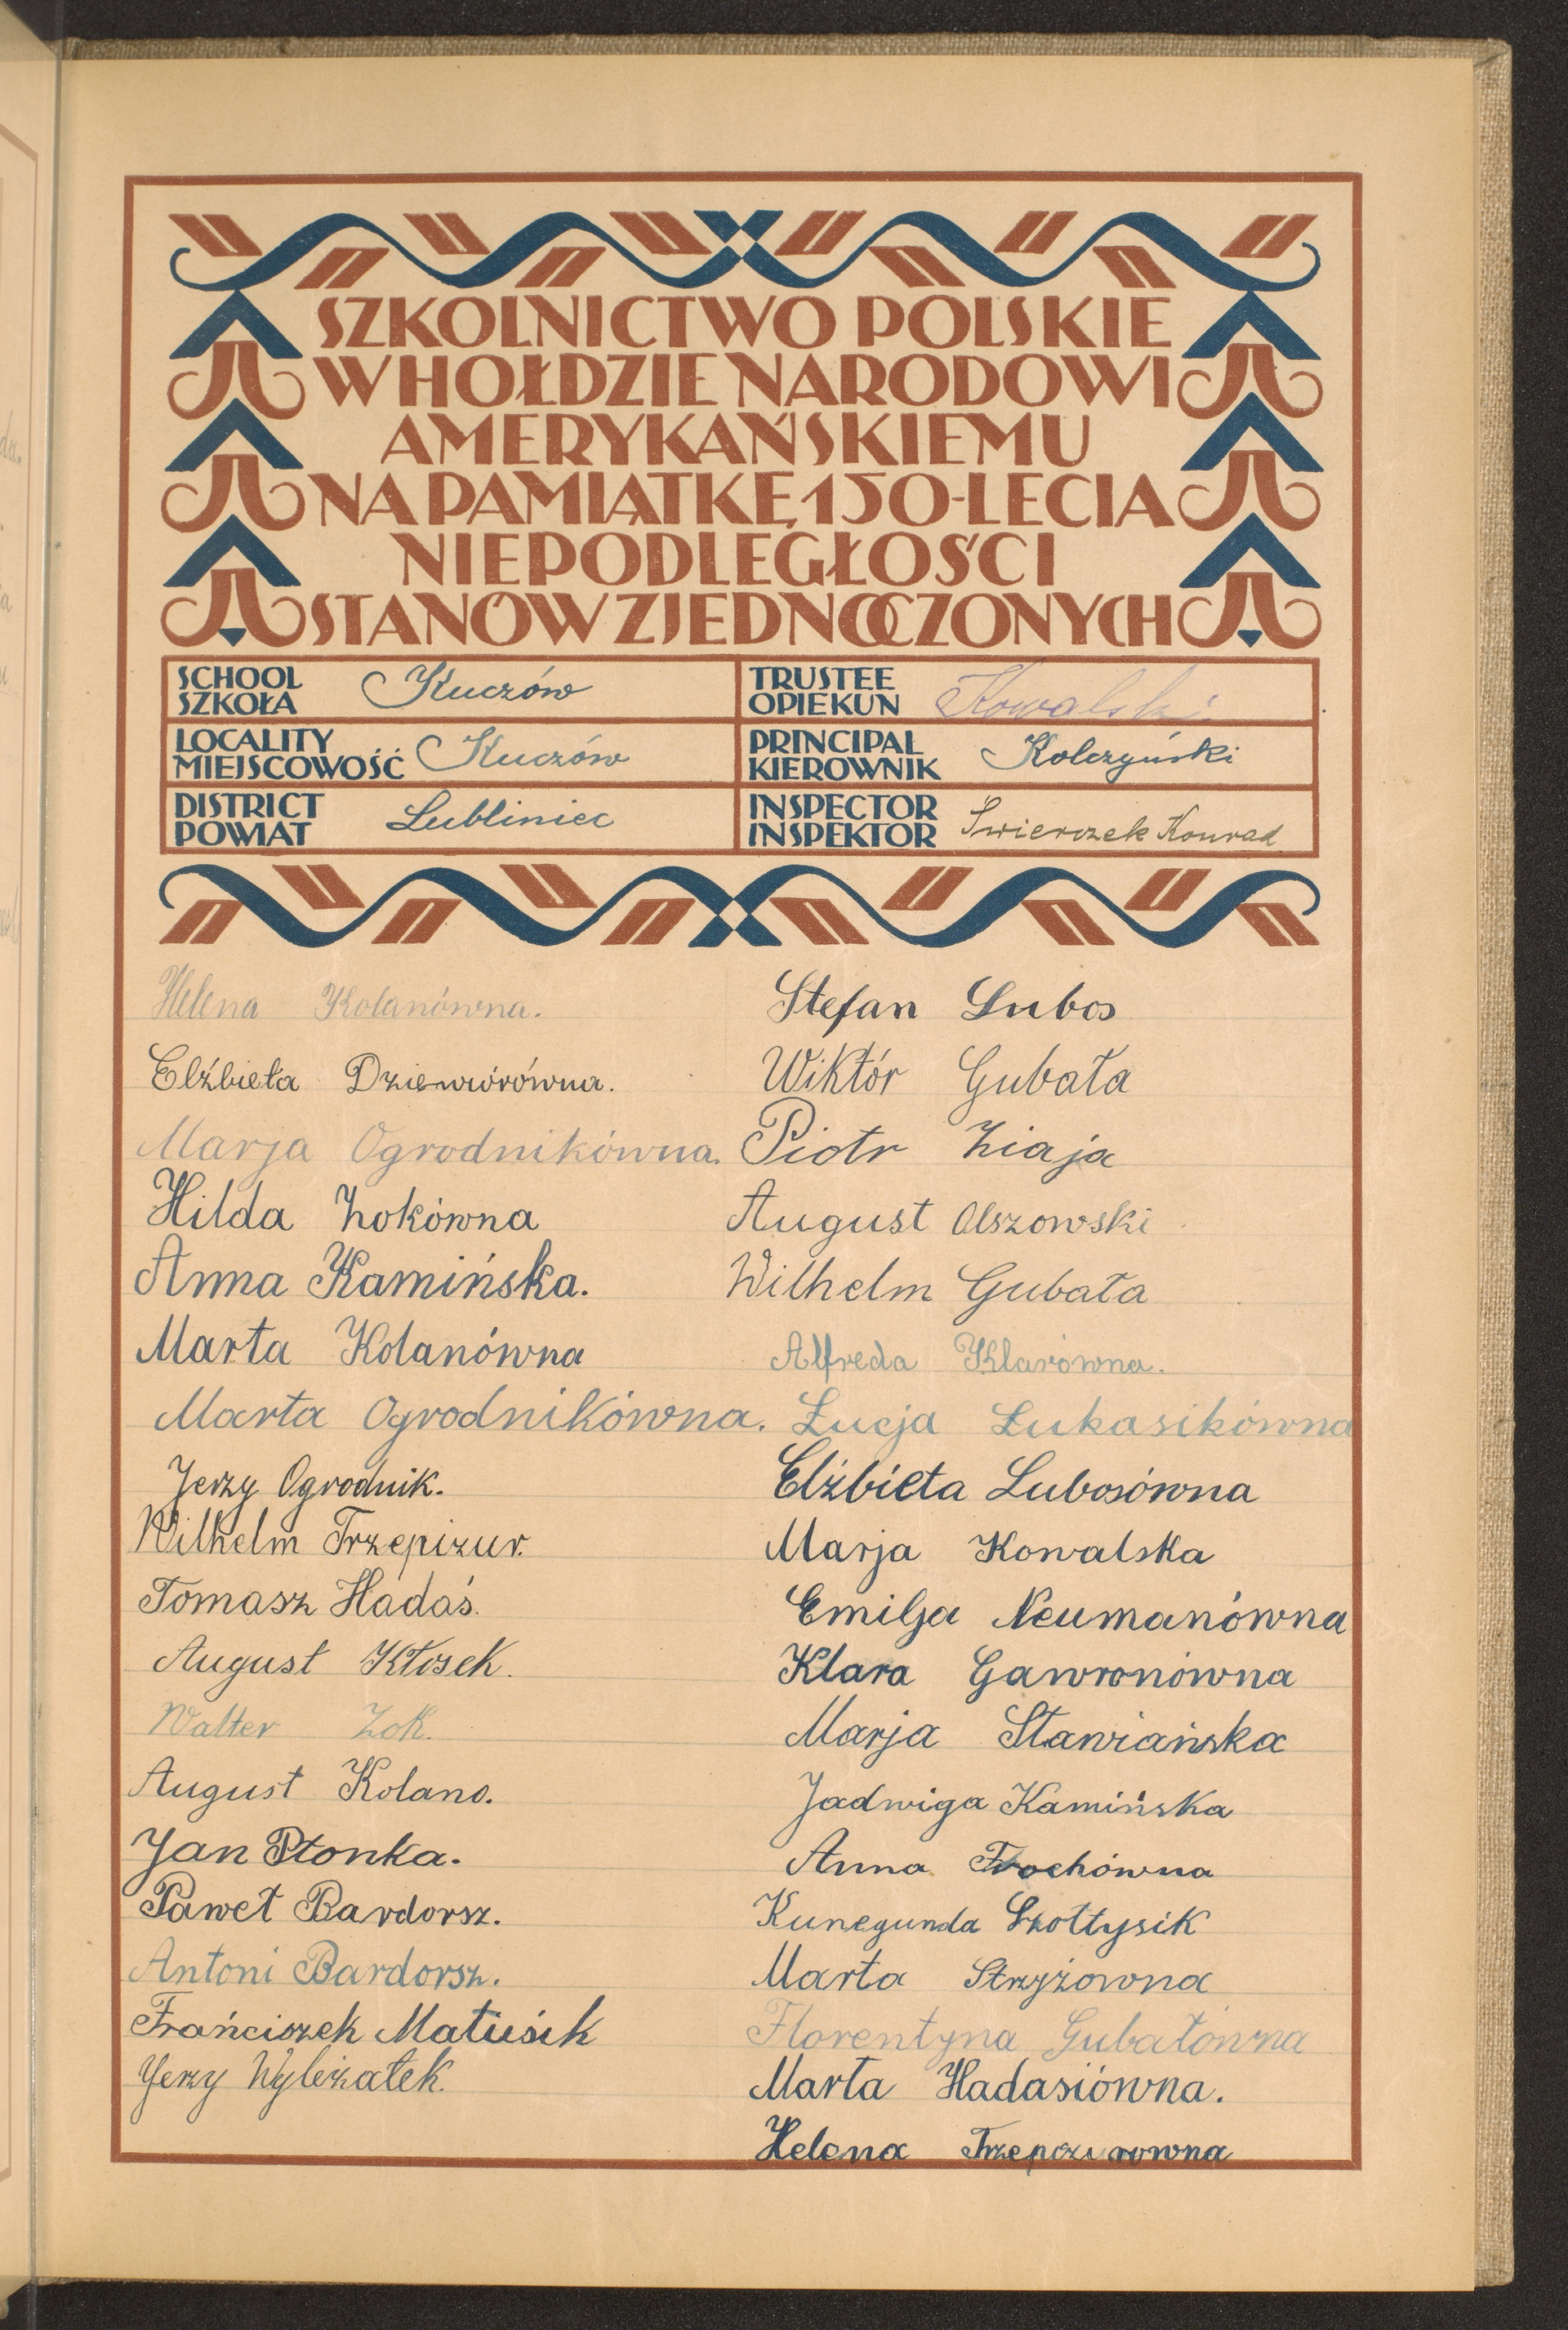 SZKOLNICTWO POLSKIE
W HOŁDZIE NARODOWI
AMERYKAŃSKIEMU
NA PAMIĄTKĘ 150-LECIA
NIEPODLEGŁOŚCI
STANÓW ZJEDNOCZONYCH
SCHOOL
SZKOŁA Kuczów
TRUSTEE
OPIEKUN Kowalski
LOCALITY
MIEJSCOWOŚĆ Kuczów
PRINCIPAL
KIEROWNIK Kolczyński
DISTRICT
POWIAT Lubliniec
INSPECTOR
INSPEKTOR Świerczek Konrad
Helena Kolanówna.
Elżbieta Dziewiórówna.
Marja Ogrodnikówna.
Hilda Żokówna
Anna Kamińska.
Marta Kolanówna
Marta Ogrodnikówna.
Jerzy Ogrodnik.
Wilhelm Trzepizur.
Tomasz Hadaś.
August Kłosek.
Walter Żok.
August Kolano.
Jan Płonka.
Paweł Bardorsz.
Antoni Bardorsz.
Frańciszek Matuśik
Jerzy Wyleżałek.
Stefan Lubos
Wiktór Gubała
Piotr Ziaja
August Olszowski
Wilhelm Gubała
Alfreda Klarówna.
Łucja Łukasikówna
Elżbieta Lubosówna
Marja Kowalska
Emilja Neumanówna
Klara Gawronówna
Marja Stawiańska
Jadwiga Kamińska
Anna Trochówna
Kunegunda Szołtysik
Marta Stryżowna
Florentyna Gubałówna
Marta Hadasiówna.
Helena